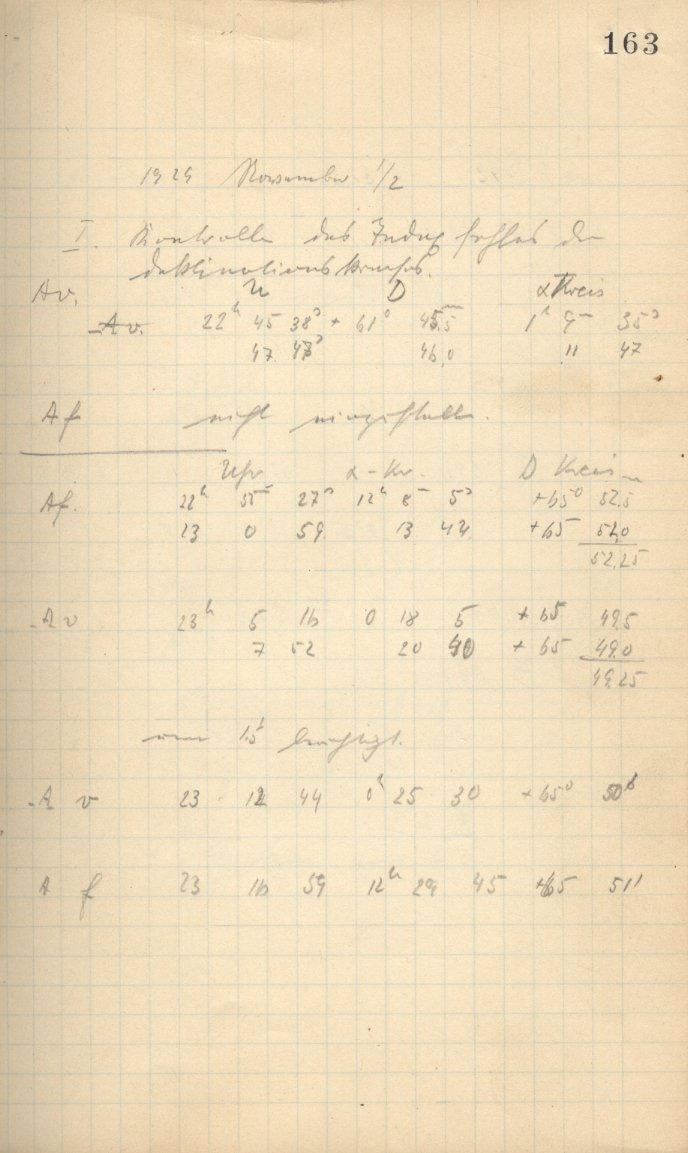 163
1929 November 1/2
I. Kontrolle des Indexfehlers des
Deklinationskreises.
Av. U D α Kreis
Av. 22h 45 38s + 61° 45,5m 1h 9m 35s
47 47s 46,0 11 47
Af nicht eingestellt.
Uhr α-Kr. D Kreis
Af. 22h 55m 27s 12h 8m 5s +65° 52,5
23 0 59 13 42 +65 52,0
52,25
Av 23h 5 16 0 18 5 +65 49,5
7 52 20 40 +65 49,0
49,25
um 1,5' berichtigt.
A v 23 12 44 0h 25 30 +65° 50'
A f 23 16 59 12h 29 45 +65 51'